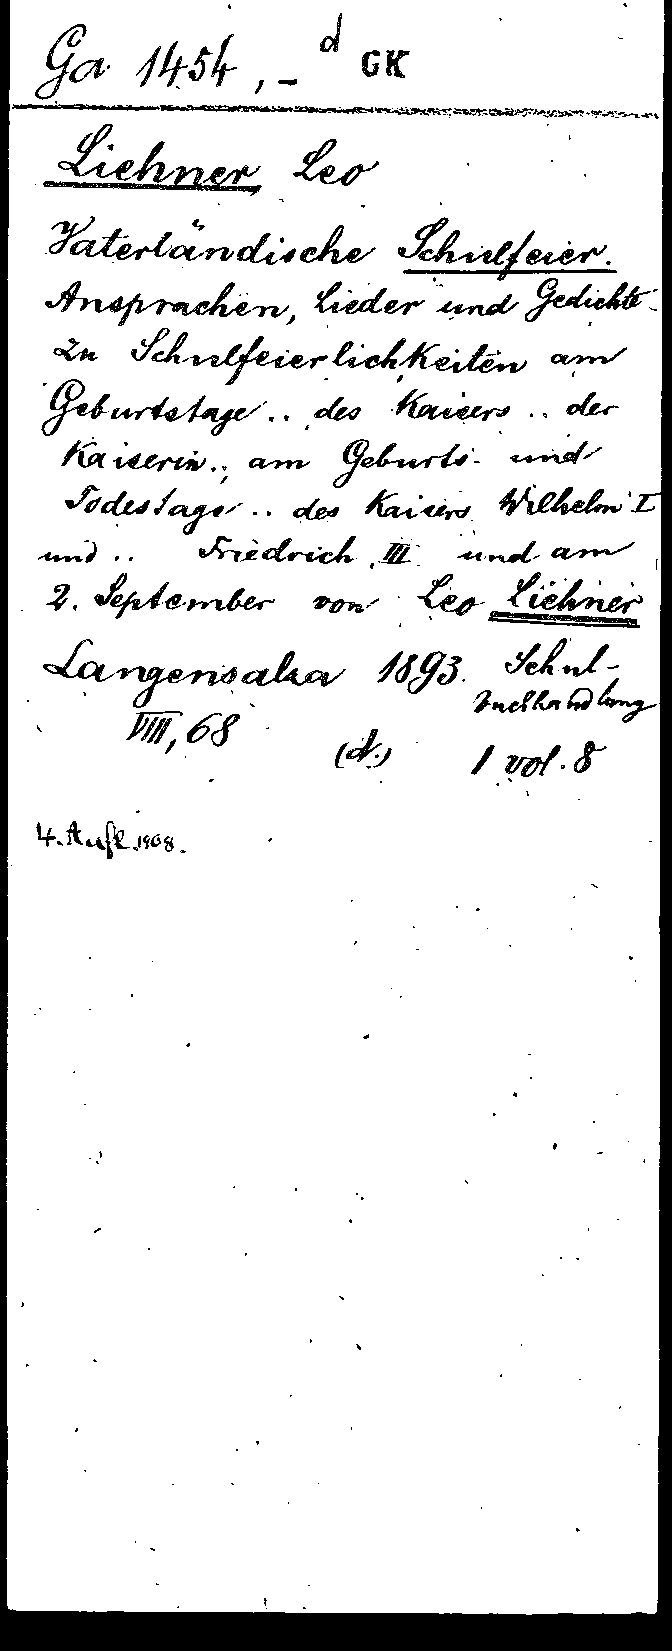 Ga 1454,- d GK
Liehner, Leo
Vaterländische Schulfeier.
Ansprachen, Lieder und Gedichte
zu Schulfeierlichkeiten am
Geburtstage .. des Kaisers .. der
Kaiserin .., am Geburts- und
Todestage .. des Kaisers Wilhelm I
und .. Friedrich III und am
2. September von Leo Liehner
Langensalza 1893. Schul-
buchhandlung
VIII, 68 (d.) 1 vol. 8
4. Aufl. 1908.